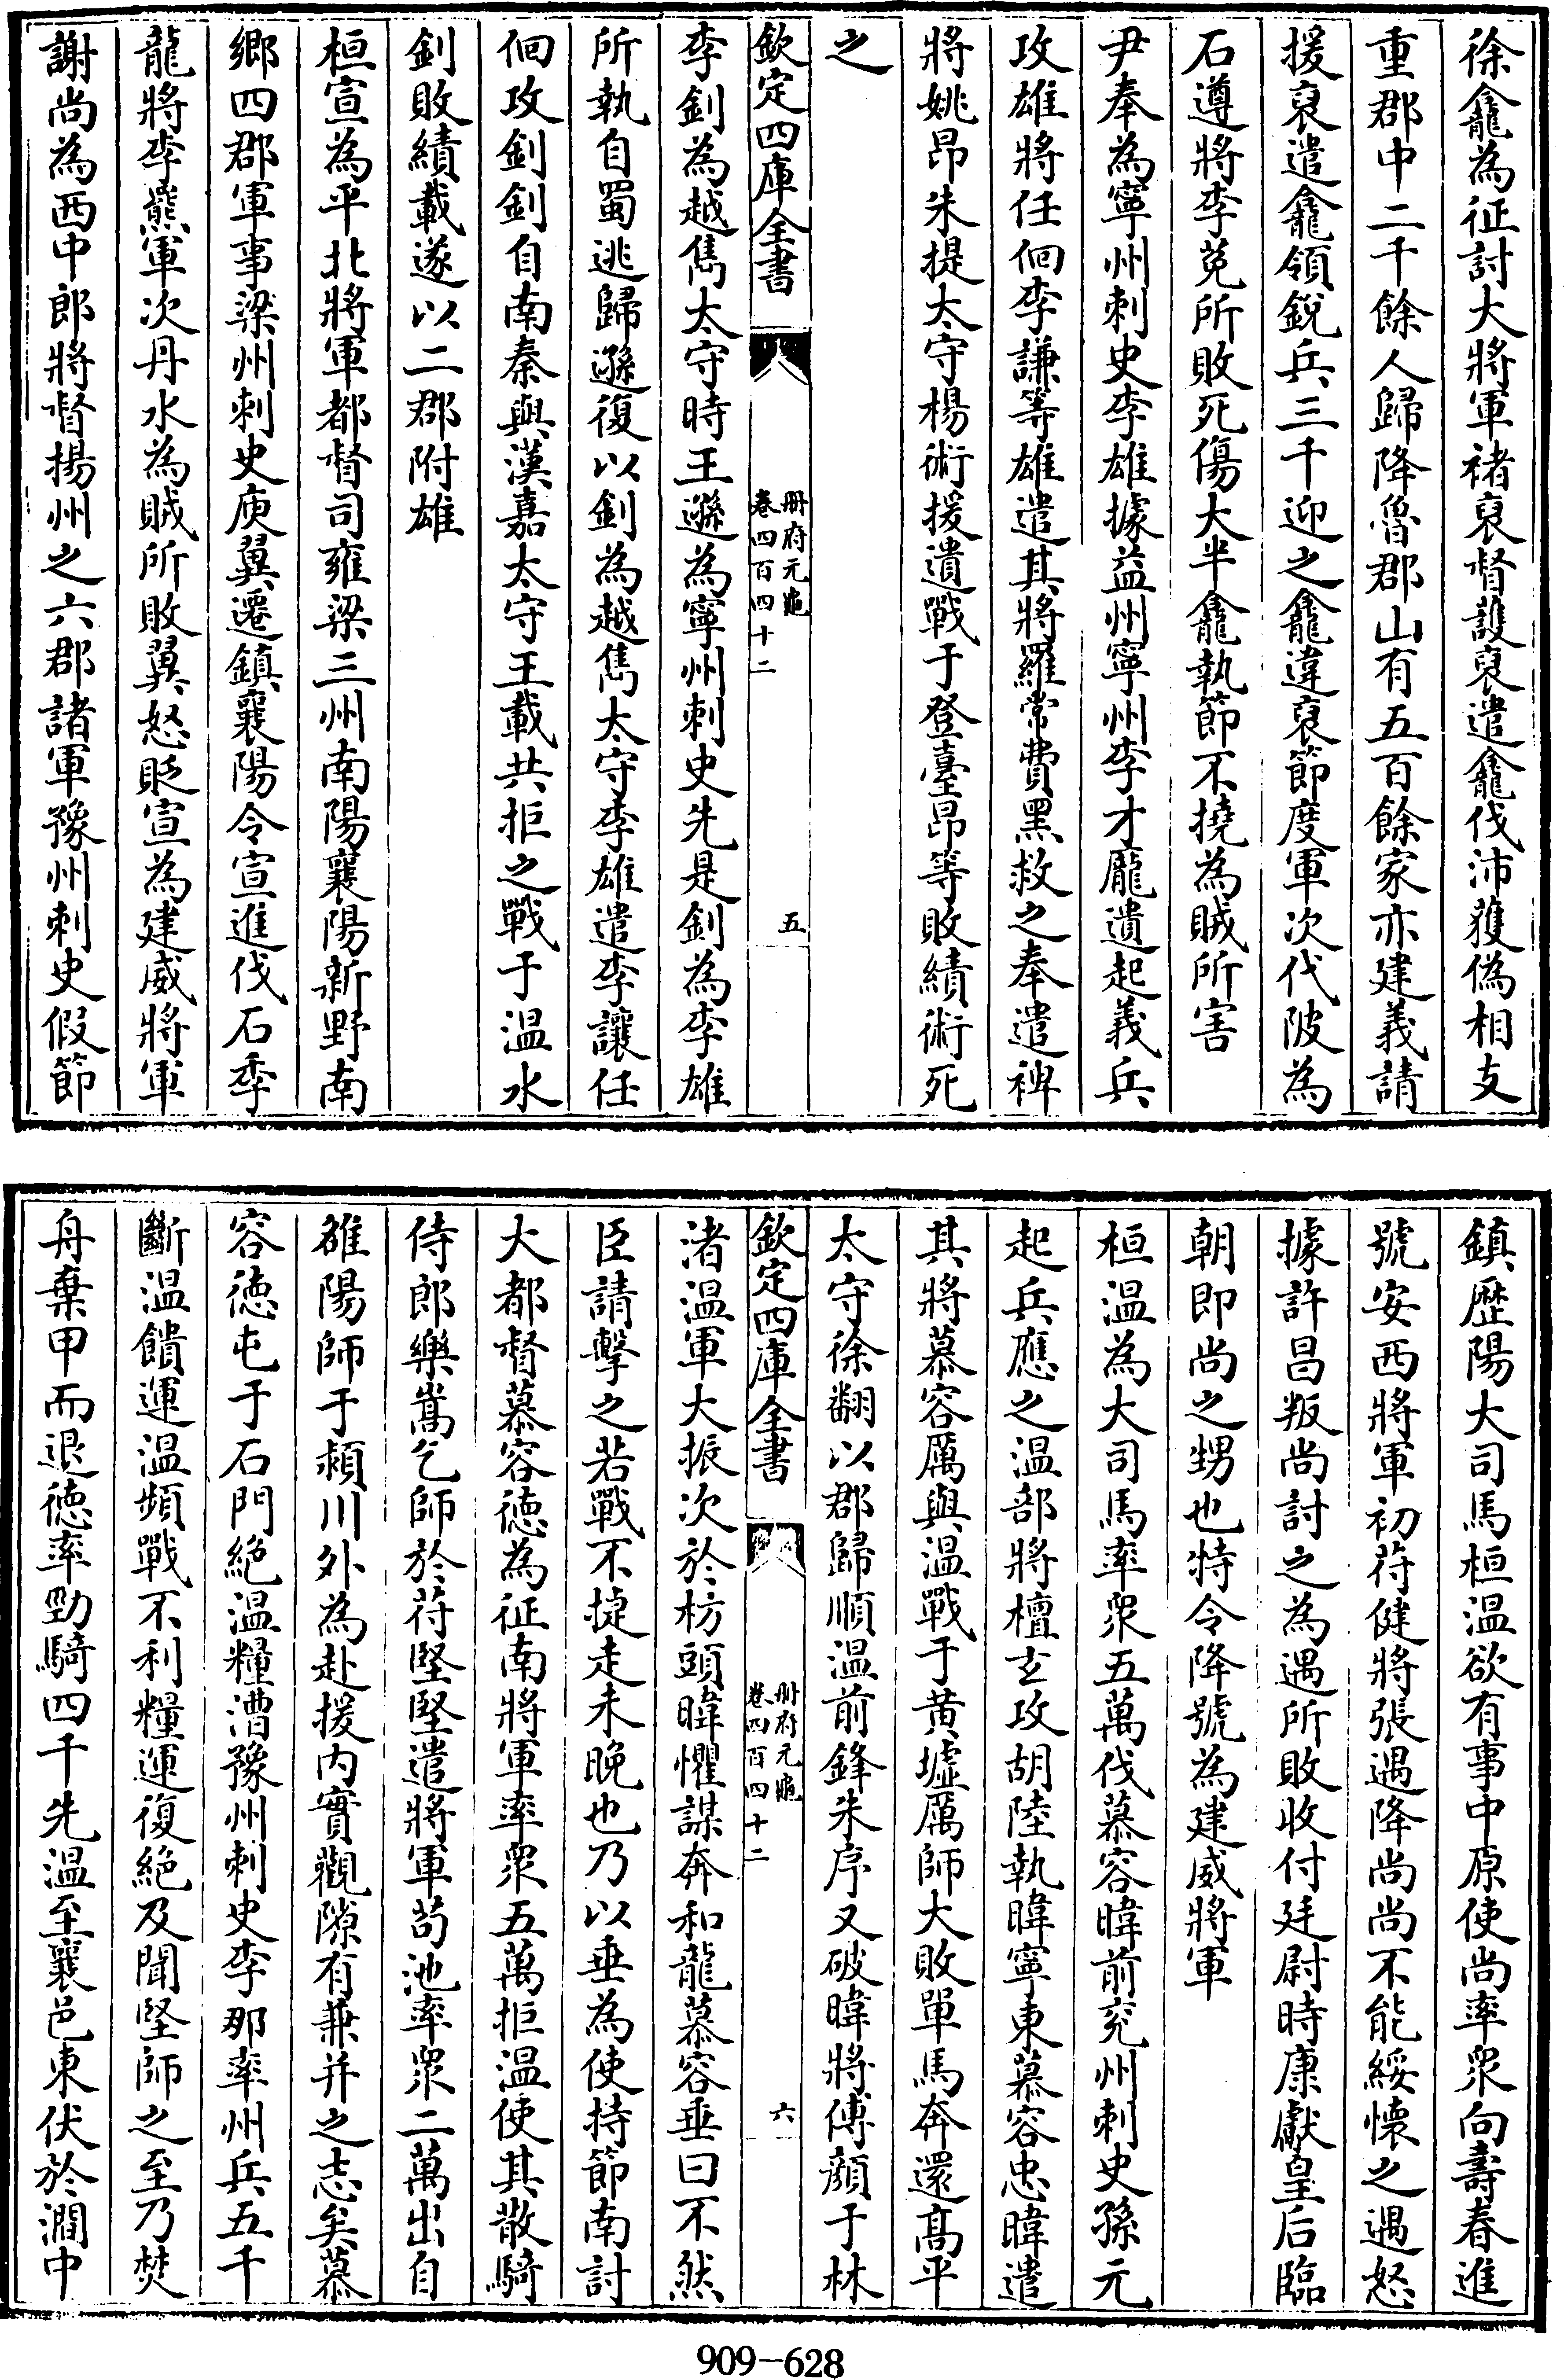 徐龕為征討大將軍褚裒督護裒遣龕伐沛獲偽相支
重郡中二千餘人歸降魯郡山有五百餘家亦建義請
援裒遣龕領銳兵三千迎之龕違裒節度軍次代陂為
石遵將李菟所敗死傷大半龕執節不撓為賊所害
尹奉為寧州刺史李雄據益州寧州李才龐遺起義兵
攻雄將任佪李謙等雄遣其將羅常費黑救之奉遣裨
將姚昂朱提太守楊術援遺戰于登臺昂等敗績術死
之
欽定四庫全書
冊府元龜
卷四百四十二
五
李釗為越雋太守時王遜為寧州刺史先是釗為李雄
所執自蜀逃歸遜復以釗為越雋太守李雄遣李讓任
佪攻釗釗自南秦與漢嘉太守王載共拒之戰于温水
釗敗績載遂以二郡附雄
桓宣為平北將軍都督司雍梁三州南陽襄陽新野南
鄉四郡軍事梁州刺史庾翼遷鎮襄陽令宣進伐石季
龍將李羆軍次丹水為賊所敗翼怒貶宣為建威將軍
謝尚為西中郎將督揚州之六郡諸軍豫州刺史假節
鎮歴陽大司馬桓温欲有事中原使尚率衆向壽春進
號安西將軍初苻健將張遇降尚尚不能綏懷之遇怒
據許昌叛尚討之為遇所敗收付廷尉時康獻皇后臨
朝即尚之甥也特令降號為建威將軍
桓温為大司馬率衆五萬伐慕容暐前兖州刺史孫元
起兵應之温部將檀玄攻胡陸執暐寧東慕容忠暐遣
其將慕容厲與温戰于黄墟厲師大敗單馬奔還髙平
太守徐翻以郡歸順温前鋒朱序又破暐將傅顔于林
欽定四庫全書
冊府元龜
卷四百四十二
六
渚温軍大振次於枋頭暐懼謀奔和龍慕容垂曰不然
臣請擊之若戰不捷走未晚也乃以垂為使持節南討
大都督慕容徳為征南將軍率衆五萬拒温使其散騎
侍郎樂嵩乞師於苻堅堅遣將軍苟池率衆二萬出自
雒陽師于潁川外為赴援内實觀隙有兼并之志矣慕
容徳屯于石門絶温糧漕豫州刺史李邦率州兵五千
斷温饋運温頻戰不利糧運復絶及聞堅師之至乃焚
舟棄甲而退徳率勁騎四千先温至襄邑東伏於澗中
909-628